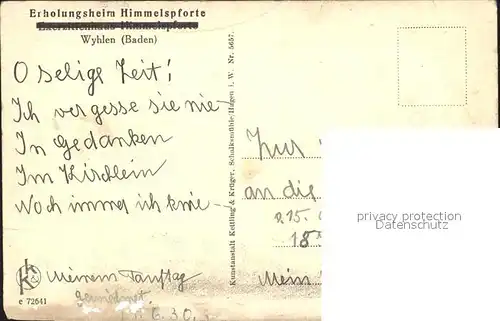 Erholungsheim Himmelspforte
Exerzitienhaus Himmelspforte
Wyhlen (Baden)
O selige Zeit!
Ich vergesse sie nie -
In Gedanken
Im Kirchlein
Noch immer ich knie -
Meinem Tauftag
gewidmet.
6.30.
K&K
e 72641
Kunstanstalt Kettling & Krüger, Schalksmühle-Hagen i. W. Nr. 5657.
Zur
an die
2.15.
18
Mein
privacy protection
Datenschutz